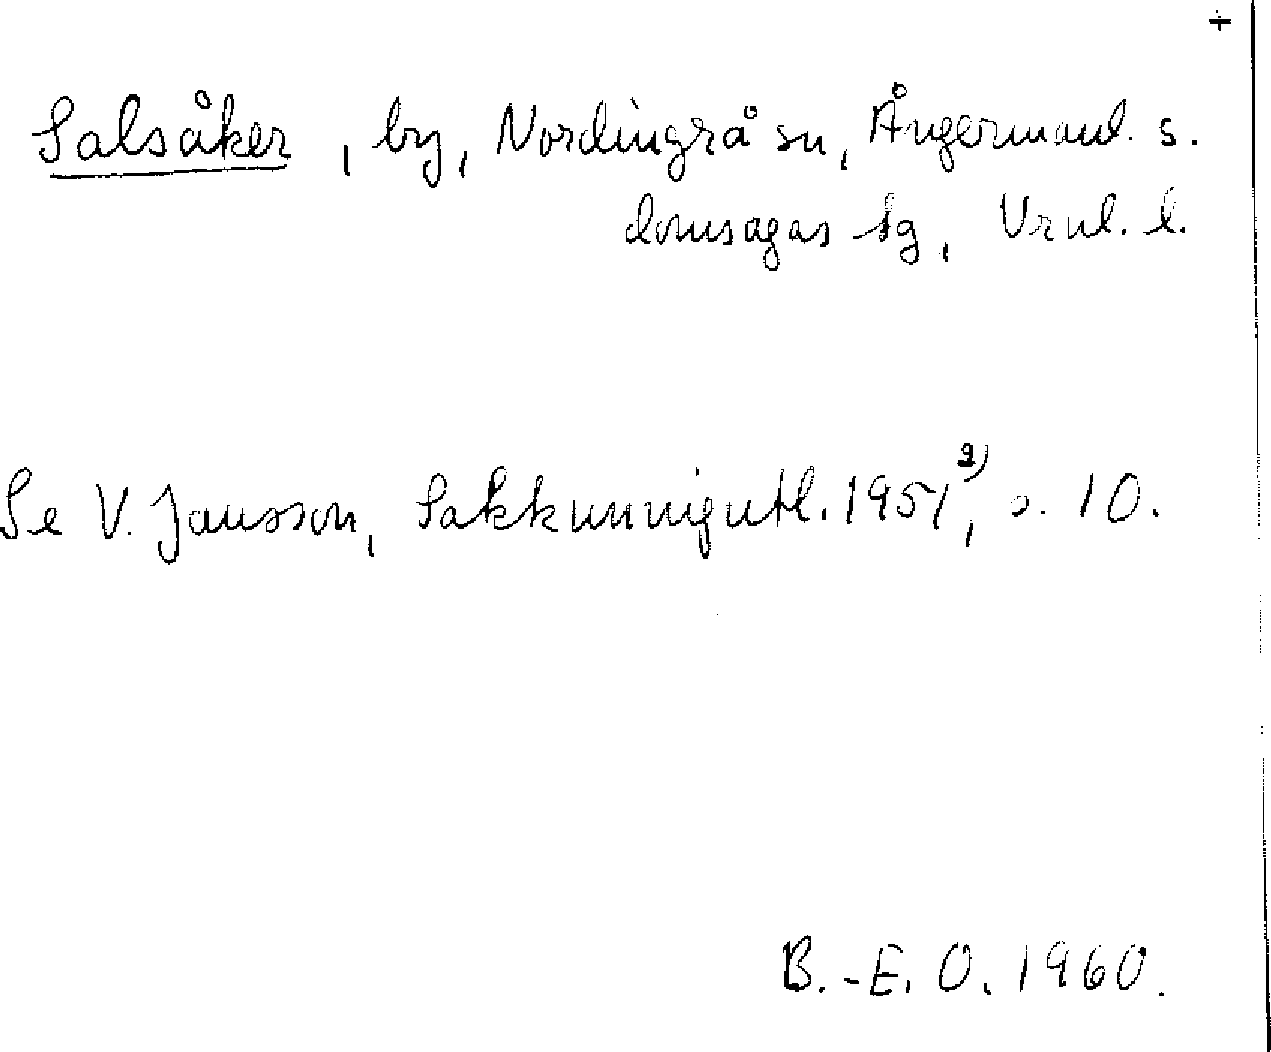 +
Salsåker, by, Nordingrå sn, Ångermanl. s.
domsagas tg, Vrnl. l.
Se V. Jansson, Sakkunnigutl. 1951²⁾, s. 10.
B.-E. O. 1960.